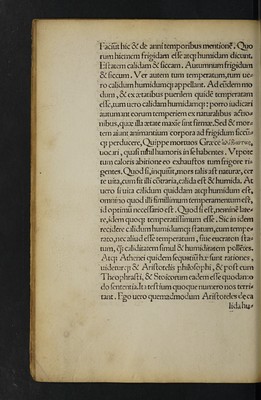 Faciūt hic & de anni temporibus mentionē. Quo
rum hiemem frigidam esse atq; humidam dicunt.
Estatem calidam & siccam. Autumnum frigidum
& siccum. Ver autem tum temperatum, tum ue-
ro calidum humidumq; appellant. Ad eundem mo
dum, & ex ætatibus puerilem quidē temperatam
esse, tum uero calidam humidamq;: porro iudicari
autumant eorum temperiem ex naturalibus actio-
nibus, quæ illa ætate maxīe sint firmæ. Sed & mor-
tem aiunt animantium corpora ad frigidum siccū-
q; perducere, Quippe mortuos Græce
uocari, quasi nihil humoris in se habentes. Vtpote
tum caloris abitione eo exhaustos tum frigore ri-
gentes. Quod si, inquiūt, mors talis est natura, cer
te uita, cum sit illi cōtraria, calida est & humida. At
uero si uita calidum quiddam atq; humidum est,
omnino quod illi simillimum temperamentum est,
id optimū necessario est. Quod si est, nemine latere,
idem quoq; temperatissimum esse. Sic in idem
recidere calidum humidumq; statum, cum tempe-
rato, nec aliud esse temperatum, siue eucraton sta-
tum, q̄ caliditatem simul & humiditatem pollētes.
Atq; Athenei quidem sequutiū hæ sunt rationes,
uideturq; & Aristotelis philosophi, & post eum
Theophrasti, & Stoicorum eadem esse quodam mo
do sententia. Ita testium quoque numero nos terri-
tant. Ego uero quemadmodum Aristoteles de ca
lida hu-